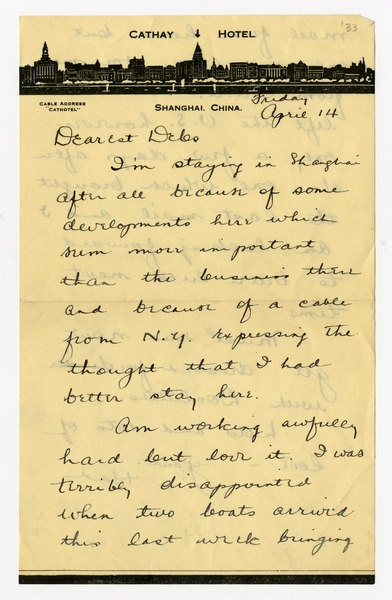 '33
CATHAY HOTEL
CABLE ADDRESS
"CATHOTEL"
SHANGHAI, CHINA.
Friday
April 14
Dearest Debs
I'm staying in Shanghai
after all because of some
developments here which
seem more important
than the business there
and because of a cable
from N.Y. expressing the
thought that I had
better stay here.
Am working awfully
hard but love it. I was
terribly disappointed
when two boats arrived
this last week bringing